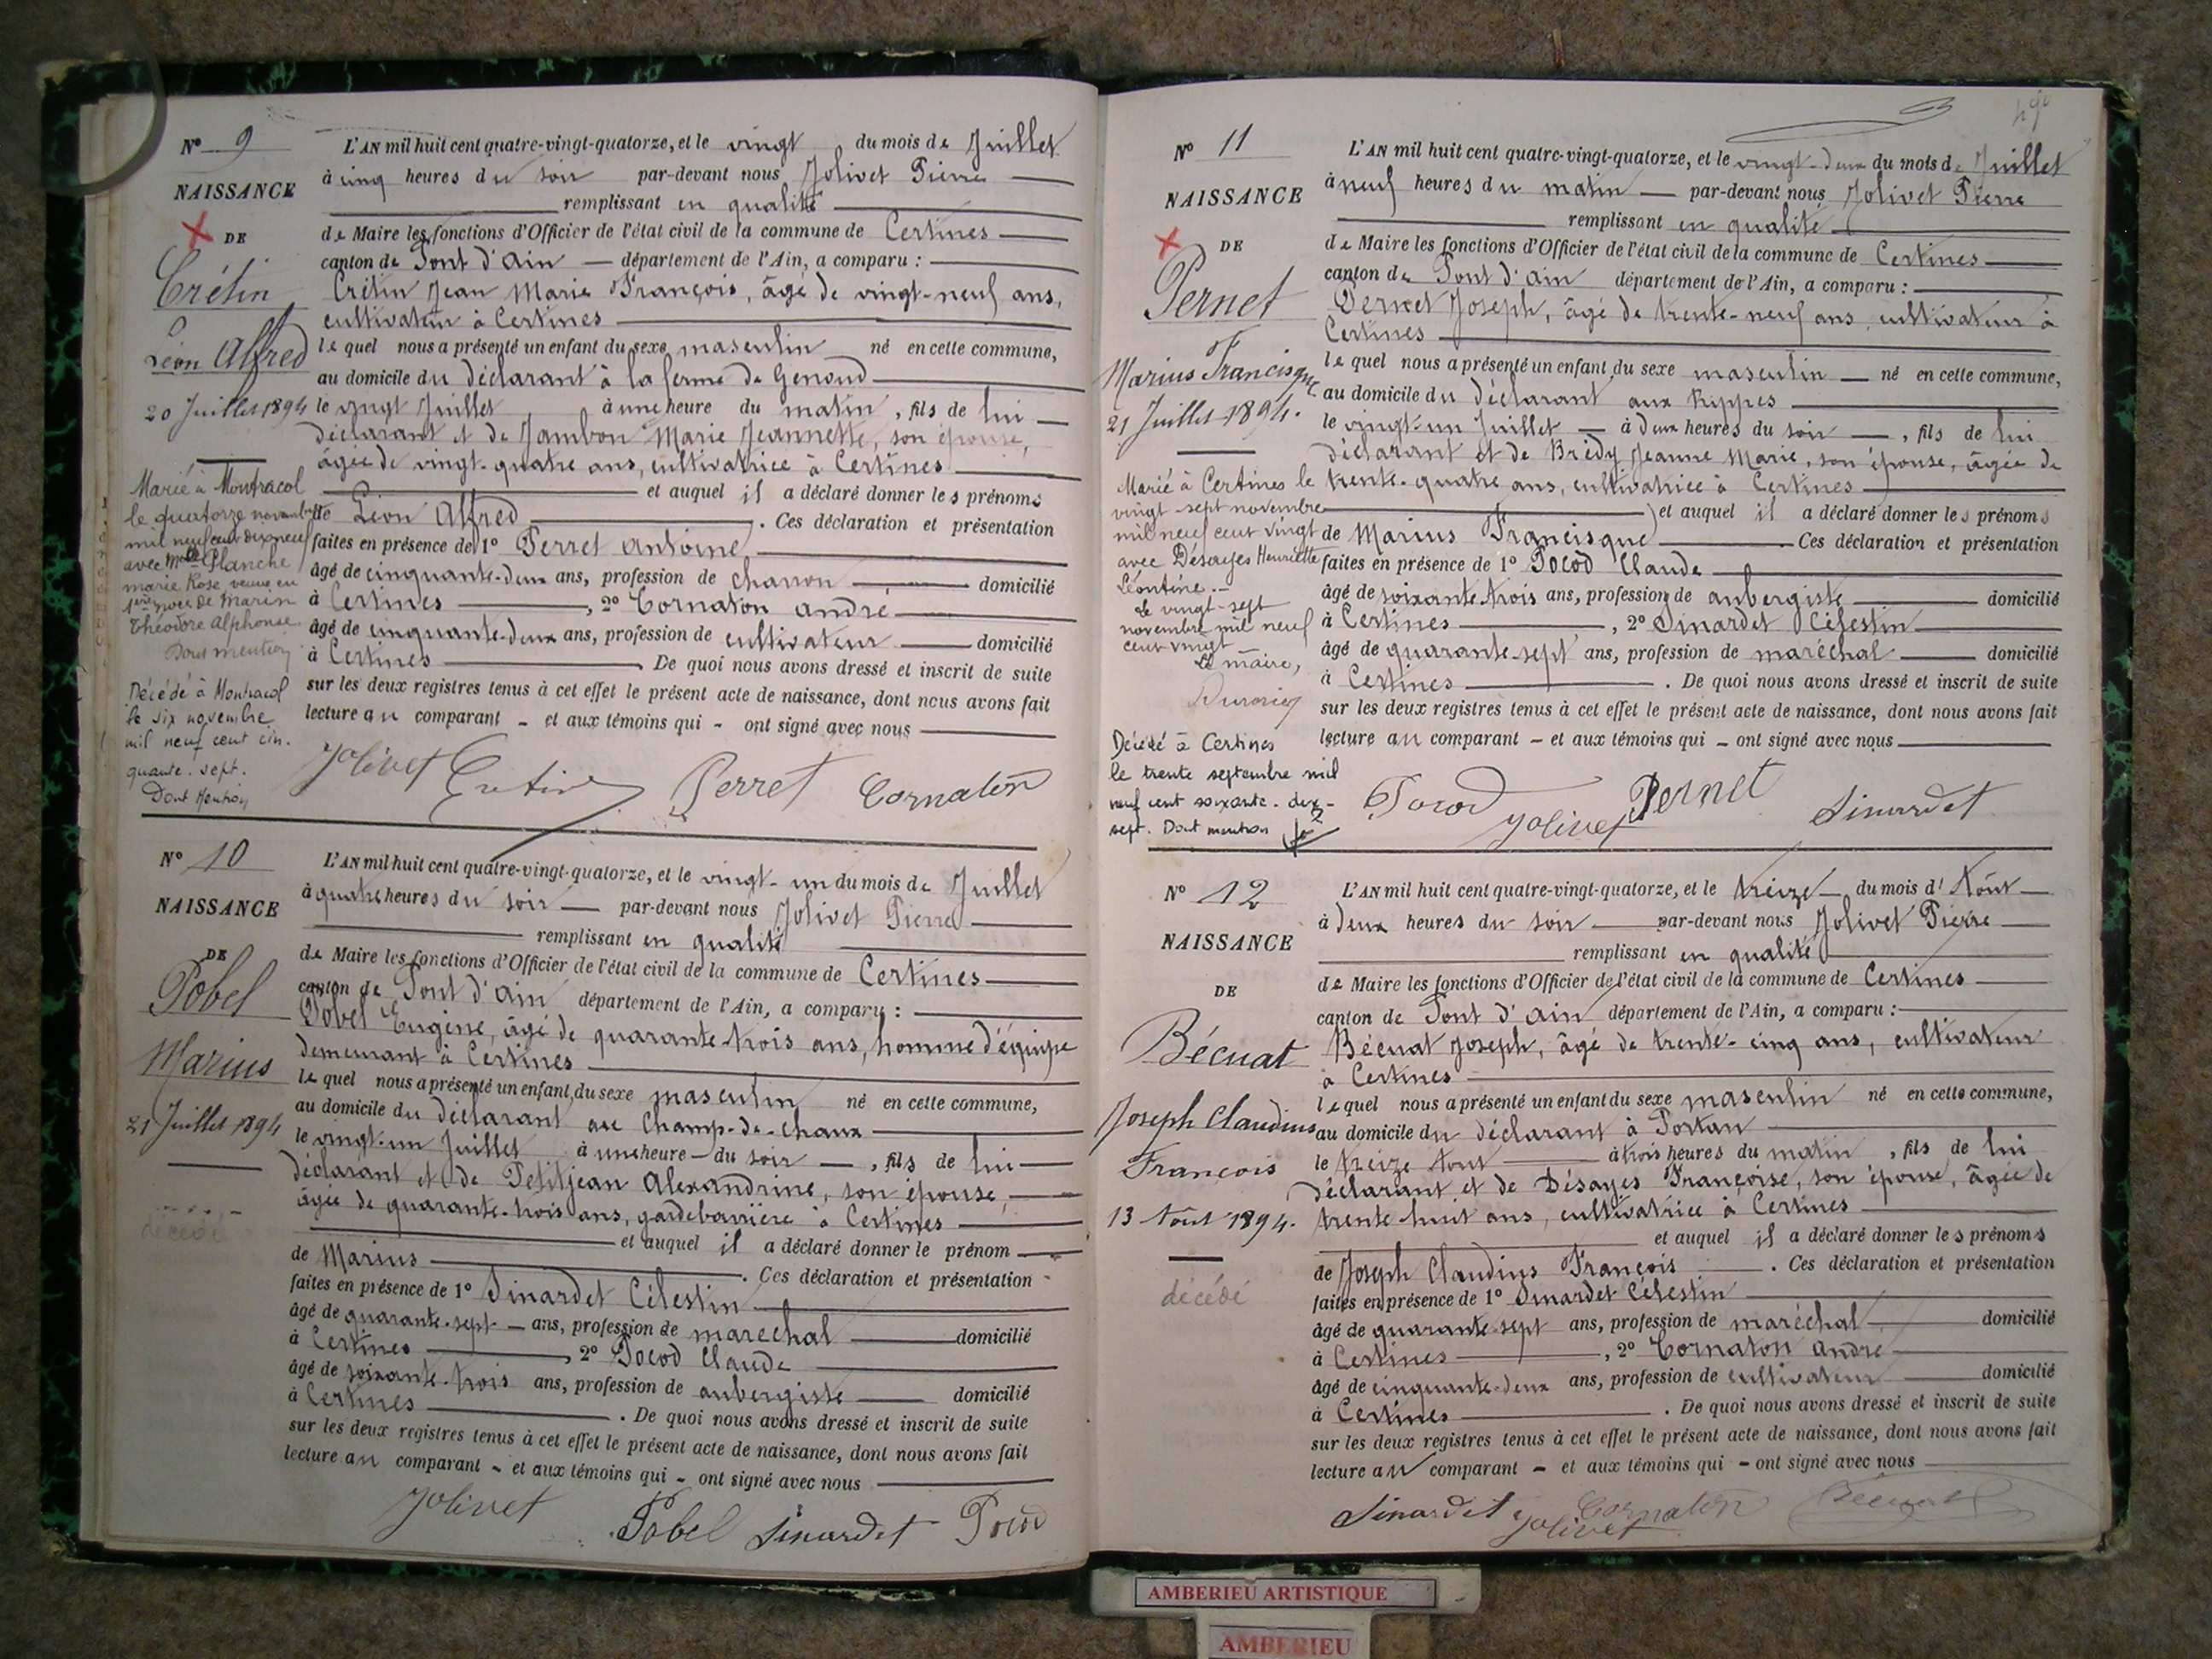 N° 9
NAISSANCE
DE
Crétin
Léon Alfred
20 Juillet 1894
Marié à Montracol
le quatorze novembre
mil neuf cent dix neuf
avec Mme Planche
marie Rose veuve en
1ères noces de Marin
Théodore Alphonse
Dont mention
Décédé à Montracol
le six novembre
mil neuf cent cin-
quante-sept.
Dont Mention
L'AN mil huit cent quatre-vingt-quatorze, et le vingt du mois de Juillet
à cinq heures du soir par-devant nous Jolivet Pierre
remplissant en qualité
de Maire les fonctions d'Officier de l'état civil de la commune de Certines
canton de Pont d'ain département de l'Ain, a comparu :
Crétin Jean Marie François, âgé de vingt-neuf ans,
cultivateur à Certines
lequel nous a présenté un enfant du sexe masculin né en cette commune,
au domicile du déclarant à la ferme de Genoud
le vingt Juillet à une heure du matin, fils de lui
déclarant et de Jambon Marie Jeannette, son épouse,
âgée de vingt-quatre ans, cultivatrice à Certines
et auquel il a déclaré donner les prénoms
de Léon Alfred . Ces déclaration et présentation
faites en présence de 1° Perret antoine
âgé de cinquante-deux ans, profession de charron domicilié
à Certines , 2° Cornaton andré
âgé de cinquante-deux ans, profession de cultivateur domicilié
à Certines . De quoi nous avons dressé et inscrit de suite
sur les deux registres tenus à cet effet le présent acte de naissance, dont nous avons fait
lecture au comparant - et aux témoins qui - ont signé avec nous
Jolivet Crétin Perret Cornaton
N° 10
NAISSANCE
DE
Pobel
Marius
21 Juillet 1894
décédé
L'AN mil huit cent quatre-vingt-quatorze, et le vingt-un du mois de Juillet
à quatre heures du soir par-devant nous Jolivet Pierre
remplissant en qualité
de Maire les fonctions d'Officier de l'état civil de la commune de Certines
canton de Pont d'ain département de l'Ain, a comparu :
Pobel Eugène, âgé de quarante-trois ans, homme d'équipe
demeurant à Certines
lequel nous a présenté un enfant du sexe masculin né en cette commune,
au domicile du déclarant au Champ-de-chaux
le vingt-un Juillet à une heure du soir , fils de lui
déclarant et de Petitjean Alexandrine, son épouse,
âgée de quarante-trois ans, gardebarrière à Certines
et auquel il a déclaré donner le prénom
de Marius . Ces déclaration et présentation
faites en présence de 1° Sinardet Célestin
âgé de quarante-sept ans, profession de maréchal domicilié
à Certines , 2° Pocod Claude
âgé de soixante-trois ans, profession de aubergiste domicilié
à Certines . De quoi nous avons dressé et inscrit de suite
sur les deux registres tenus à cet effet le présent acte de naissance, dont nous avons fait
lecture au comparant - et aux témoins qui - ont signé avec nous
Jolivet Pobel Sinardet Pocod
N° 11
NAISSANCE
DE
Pernet
Marius Francisque
21 Juillet 1894.
Marié à Certines le
vingt-sept novembre
mil neuf cent vingt
avec Désayes Henriette
Léontine.-
Le vingt-sept
novembre mil neuf
cent vingt
Le maire,
Décédé à Certines
le trente septembre mil
neuf cent soixante-dix-
sept. Dont mention
L'AN mil huit cent quatre-vingt-quatorze, et le vingt-deux du mois de Juillet
à neuf heures du matin par-devant nous Jolivet Pierre
remplissant en qualité
de Maire les fonctions d'Officier de l'état civil de la commune de Certines
canton de Pont d'ain département de l'Ain, a comparu :
Pernet Joseph, âgé de trente-neuf ans, cultivateur à
Certines
lequel nous a présenté un enfant du sexe masculin né en cette commune,
au domicile du déclarant aux Rippes
le vingt-un Juillet à deux heures du soir , fils de lui
déclarant et de Brédy Jeanne Marie, son épouse, âgée de
trente-quatre ans, cultivatrice à Certines
et auquel il a déclaré donner les prénoms
de Marius Francisque Ces déclaration et présentation
faites en présence de 1° Pocod Claude
âgé de soixante-trois ans, profession de aubergiste domicilié
à Certines , 2° Sinardet Célestin
âgé de quarante-sept ans, profession de maréchal domicilié
à Certines . De quoi nous avons dressé et inscrit de suite
sur les deux registres tenus à cet effet le présent acte de naissance, dont nous avons fait
lecture au comparant - et aux témoins qui - ont signé avec nous
Pocod Jolivet Pernet Sinardet
N° 12
NAISSANCE
DE
Bécuat
Joseph Claudius
François
13 Août 1894.
décédé
L'AN mil huit cent quatre-vingt-quatorze, et le treize du mois d'Août
à deux heures du soir par-devant nous Jolivet Pierre
remplissant en qualité
de Maire les fonctions d'Officier de l'état civil de la commune de Certines
canton de Pont d'ain département de l'Ain, a comparu :
Bécuat Joseph, âgé de trente-cinq ans, cultivateur
à Certines
lequel nous a présenté un enfant du sexe masculin né en cette commune,
au domicile du déclarant à Portan
le treize Août à trois heures du matin , fils de lui
déclarant et de Désayes Françoise, son épouse, âgée de
trente-huit ans, cultivatrice à Certines
et auquel il a déclaré donner les prénoms
de Joseph Claudius François . Ces déclaration et présentation
faites en présence de 1° Sinardet Célestin
âgé de quarante-sept ans, profession de maréchal domicilié
à Certines , 2° Cornaton andré
âgé de cinquante-deux ans, profession de cultivateur domicilié
à Certines . De quoi nous avons dressé et inscrit de suite
sur les deux registres tenus à cet effet le présent acte de naissance, dont nous avons fait
lecture au comparant - et aux témoins qui - ont signé avec nous
Sinardet Jolivet Cornaton Bécuat
AMBERIEU ARTISTIQUE
AMBERIEU